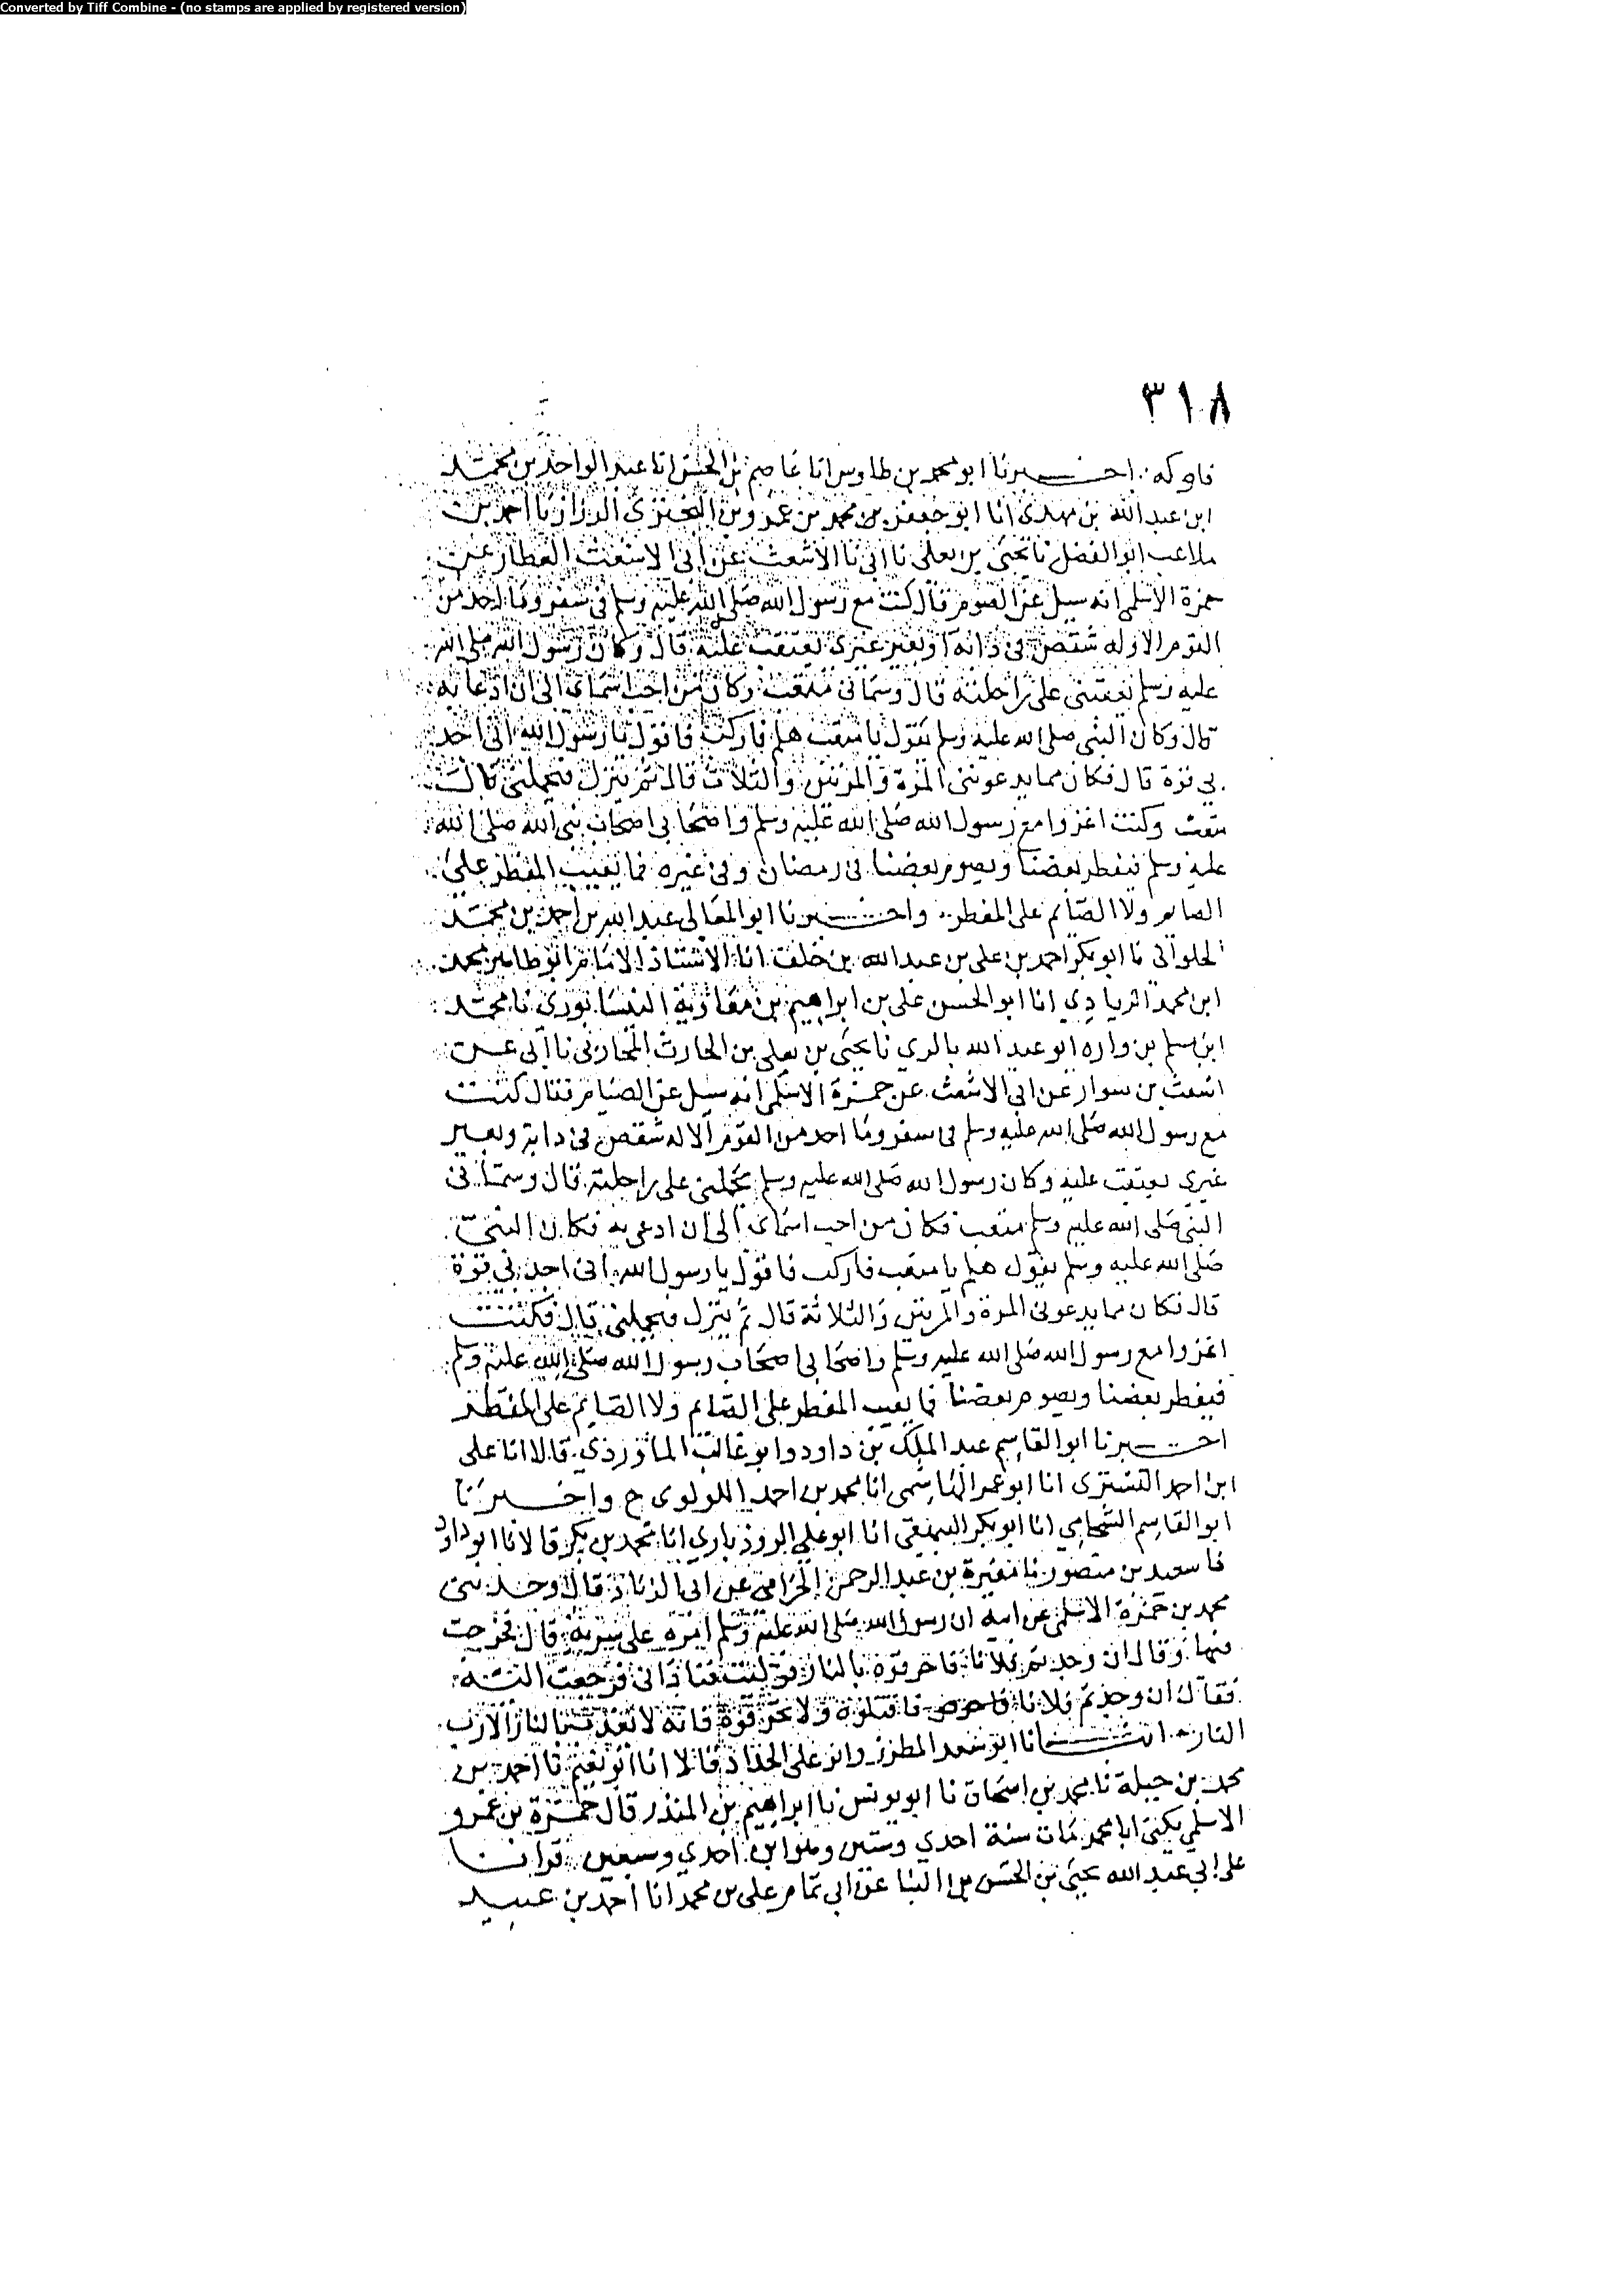 Converted by Tiff Combine - (no stamps are applied by registered version)
٣١٨
اخبرنا ابو محمد بن طاوس انا عاصم بن الحسن انا عبد الواحد بن محمد
ابن عبد الله بن مهدى انا ابو جعفر بن محمد بن عمرو بن البخترى الرزاز نا احمد بن
ملاعب ابو الفضل نا يحيى بن يعلى نا ابى نا الاشعث عن ابى الاشعث العطار عن
حمزة الاسلمى انه سيل عن الصوم قال كنت مع رسول الله صلى الله عليه وسلم فى سفر وما احد من
القوم الا وله شقص فى دابة او بعير غيرى يعتقب عليه قال وكان رسول الله صلى الله
عليه وسلم يعقبنى على راحلته قال وسمانى متعب وكان من احب اسماى الى ان ادعا به
قال وكان النبى صلى الله عليه وسلم يقول يا متعب هلم فاركب فاقول يا رسول الله انى اجد
بي قوة قال فكان مما يدعونى المرة والمرتين والثلاث قال ثم ينزل فيحملنى قال
متعب وكنت اغزوا مع رسول الله صلى الله عليه وسلم واصحابى اصحاب نبى الله صلى الله
عليه وسلم فيفطر بعضنا ويصوم بعضنا فى رمضان وفى غيره فما يعيب المفطر على
الصايم ولا الصايم على المفطر واخبرنا ابو المعالى عبد الله بن احمد بن محمد
الحلوانى نا ابو بكر احمد بن على بن عبد الله بن خلف انا الاستاذ الامام ابو طاهر محمد
ابن محمد الزيادي انا ابو الحسن على بن ابراهيم بن معاوية النيسابورى نا محمد
ابن مسلم بن واره ابو عبد الله بالري نا يحيى بن يعلى بن الحارث المحاربى نا ابى عن
اشعث بن سوار عن ابى الاشعث عن حمزة الاسلمى انه سيل عن الصيام فقال كنت
مع رسول الله صلى الله عليه وسلم فى سفر وما احد من القوم الا له شقص فى دابة وبعير
غيري يعتقب عليه وكان رسول الله صلى الله عليه وسلم يحملنى على راحلته قال وسمانى
النبى صلى الله عليه وسلم متعب فكان من احب اسماى الى ان ادعى به فكان النبى
صلى الله عليه وسلم يقول هلم يا متعب فاركب فاقول يا رسول الله انى اجد بي قوة
قال فكان مما يدعونى المرة والمرتين والثلاثة قال ثم ينزل فيحملنى قال فكنت
اغزوا مع رسول الله صلى الله عليه وسلم واصحابى اصحاب رسول الله صلى الله عليه وسلم
فيفطر بعضنا ويصوم بعضنا فما يعيب المفطر على الصايم ولا الصايم على المفطر
اخبرنا ابو القاسم عبد الملك بن داود وابو غالب الماوردي قالا انا على
ابن احمد التسترى انا ابو عمر الهاشمى انا محمد بن احمد اللولوى ح واخبرنا
ابو القاسم الشحامي انا ابو بكر البيهقى انا ابو على الروذباري انا محمد بن بكر قالا نا ابو داود
نا سعيد بن منصور نا مغيرة بن عبد الرحمن الحزامى عن ابى الزناد قال وحدثنى
محمد بن حمزة الاسلمى عن ابيه ان رسول الله صلى الله عليه وسلم امره على سرية قال فخرجت
فيها وقال ان وجدتم فلانا فاحرقوه بالنار فوليت فنادانى فرجعت اليه
فقال ان وجدتم فلانا فاقتلوه ولا تحرقوه فانه لا يعذب بالنار الا رب
النار انبانا ابو سعد المطرز وابو على الحداد قالا انا ابو نعيم نا احمد بن
محمد بن جبلة نا محمد بن اسحاق نا ابو يونس نا ابراهيم بن المنذر قال حمزة بن عمرو
الاسلمي يكنى ابا محمد مات سنة احدي وستين وهو ابن احدي وسبعين قرانا
على ابي عبد الله يحيى بن الحسن بن البنا عن ابى تمام على بن محمد انا احمد بن عبيد